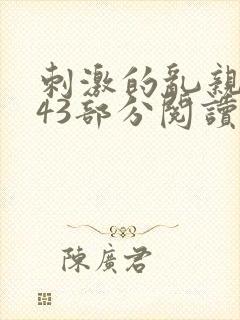 刺激的亂親
43部分閱讀
陳廣君